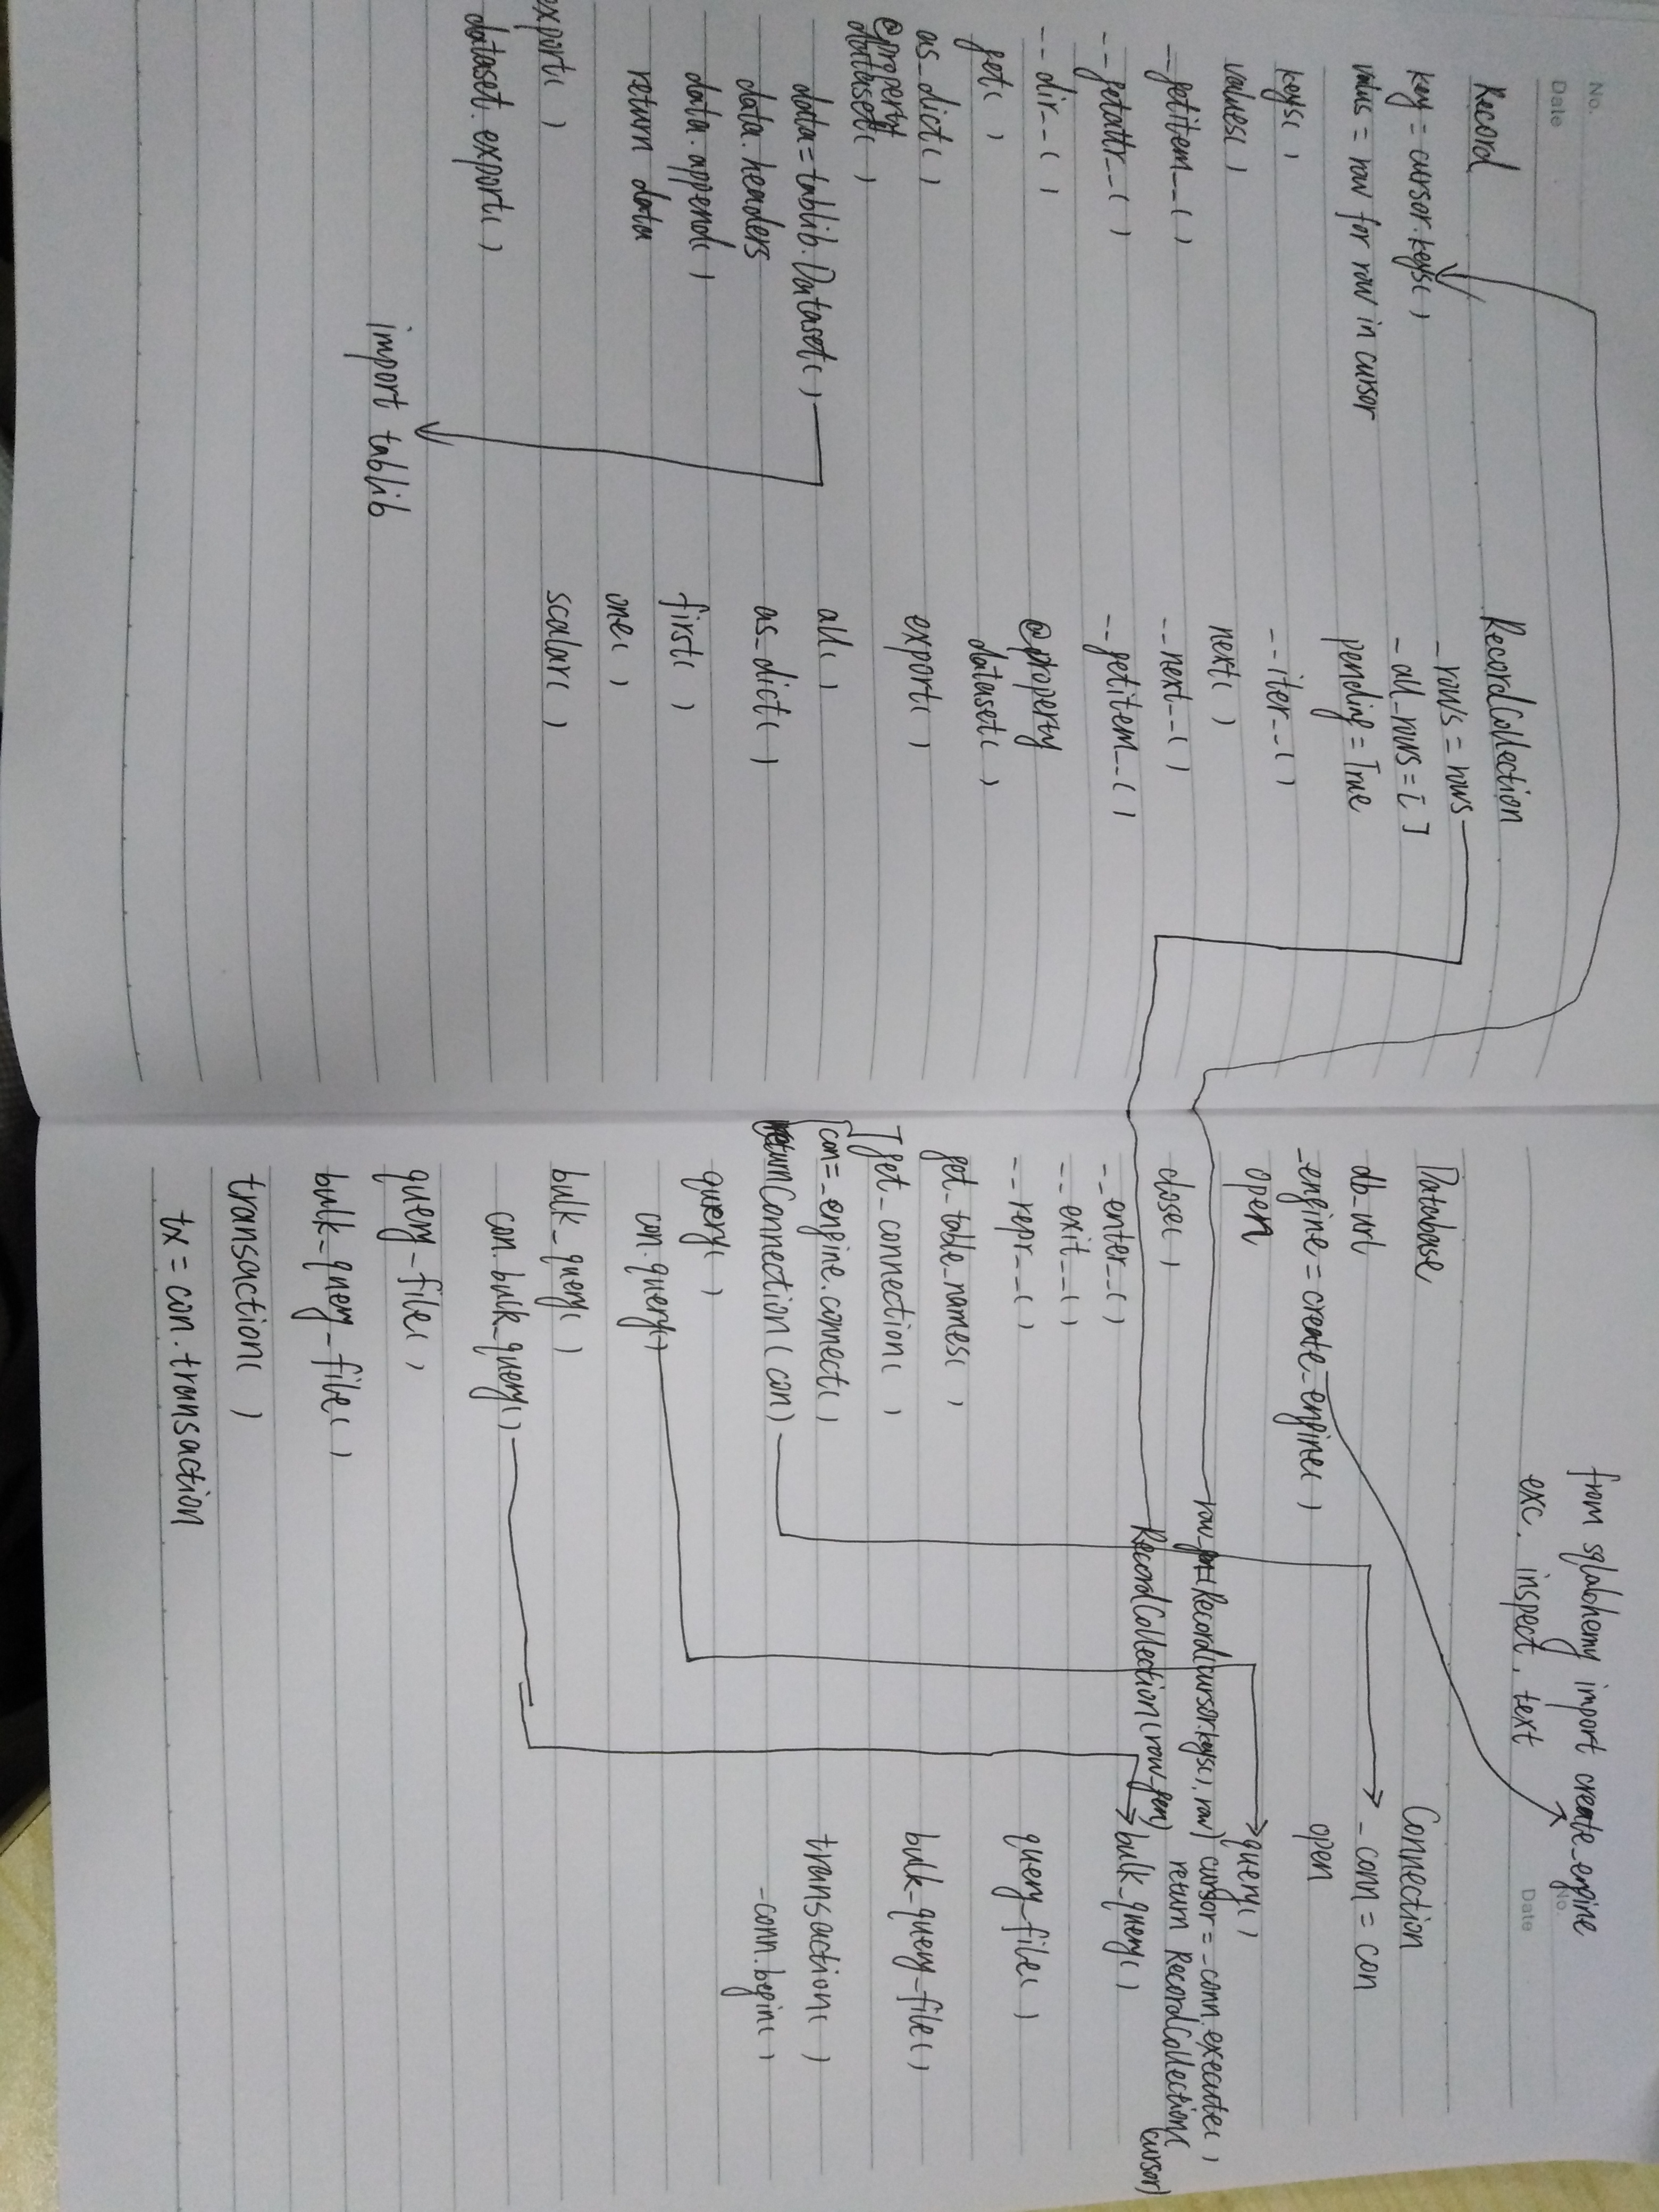 No.
Date
Record
key = cursor.keys( )
values = row for row in cursor
keys( )
values( )
__getitem__( )
__getattr__( )
__dir__( )
get( )
as_dict( )
@property
dataset( )
data = tablib.Dataset( )
data.headers
data.append( )
return data
export( )
dataset.export( )
import tablib
RecordCollection
_rows = rows
_all_rows = [ ]
pending = True
__iter__( )
next( )
__next__( )
__getitem__( )
@property
dataset( )
export( )
all( )
as_dict( )
first( )
one( )
scalar( )
from sqlalchemy import create_engine
exc. inspect, text
No.
Date
Database
db_url
_engine = create_engine( )
open
close( )
__enter__( )
__exit__( )
__repr__( )
get_table_names( )
get_connection( )
con = _engine.connect( )
return Connection(con)
query( )
con.query( )
bulk_query( )
con.bulk_query( )
query_file( )
bulk_query_file( )
transaction( )
tx = con.transaction
Connection
_conn = con
open
query( )
row_gen Record(cursor.keys( ), row) cursor = _conn.execute( )
RecordCollection(row_gen) return RecordCollection(
cursor)
bulk_query( )
query_file( )
bulk_query_file( )
transaction( )
_conn.begin( )